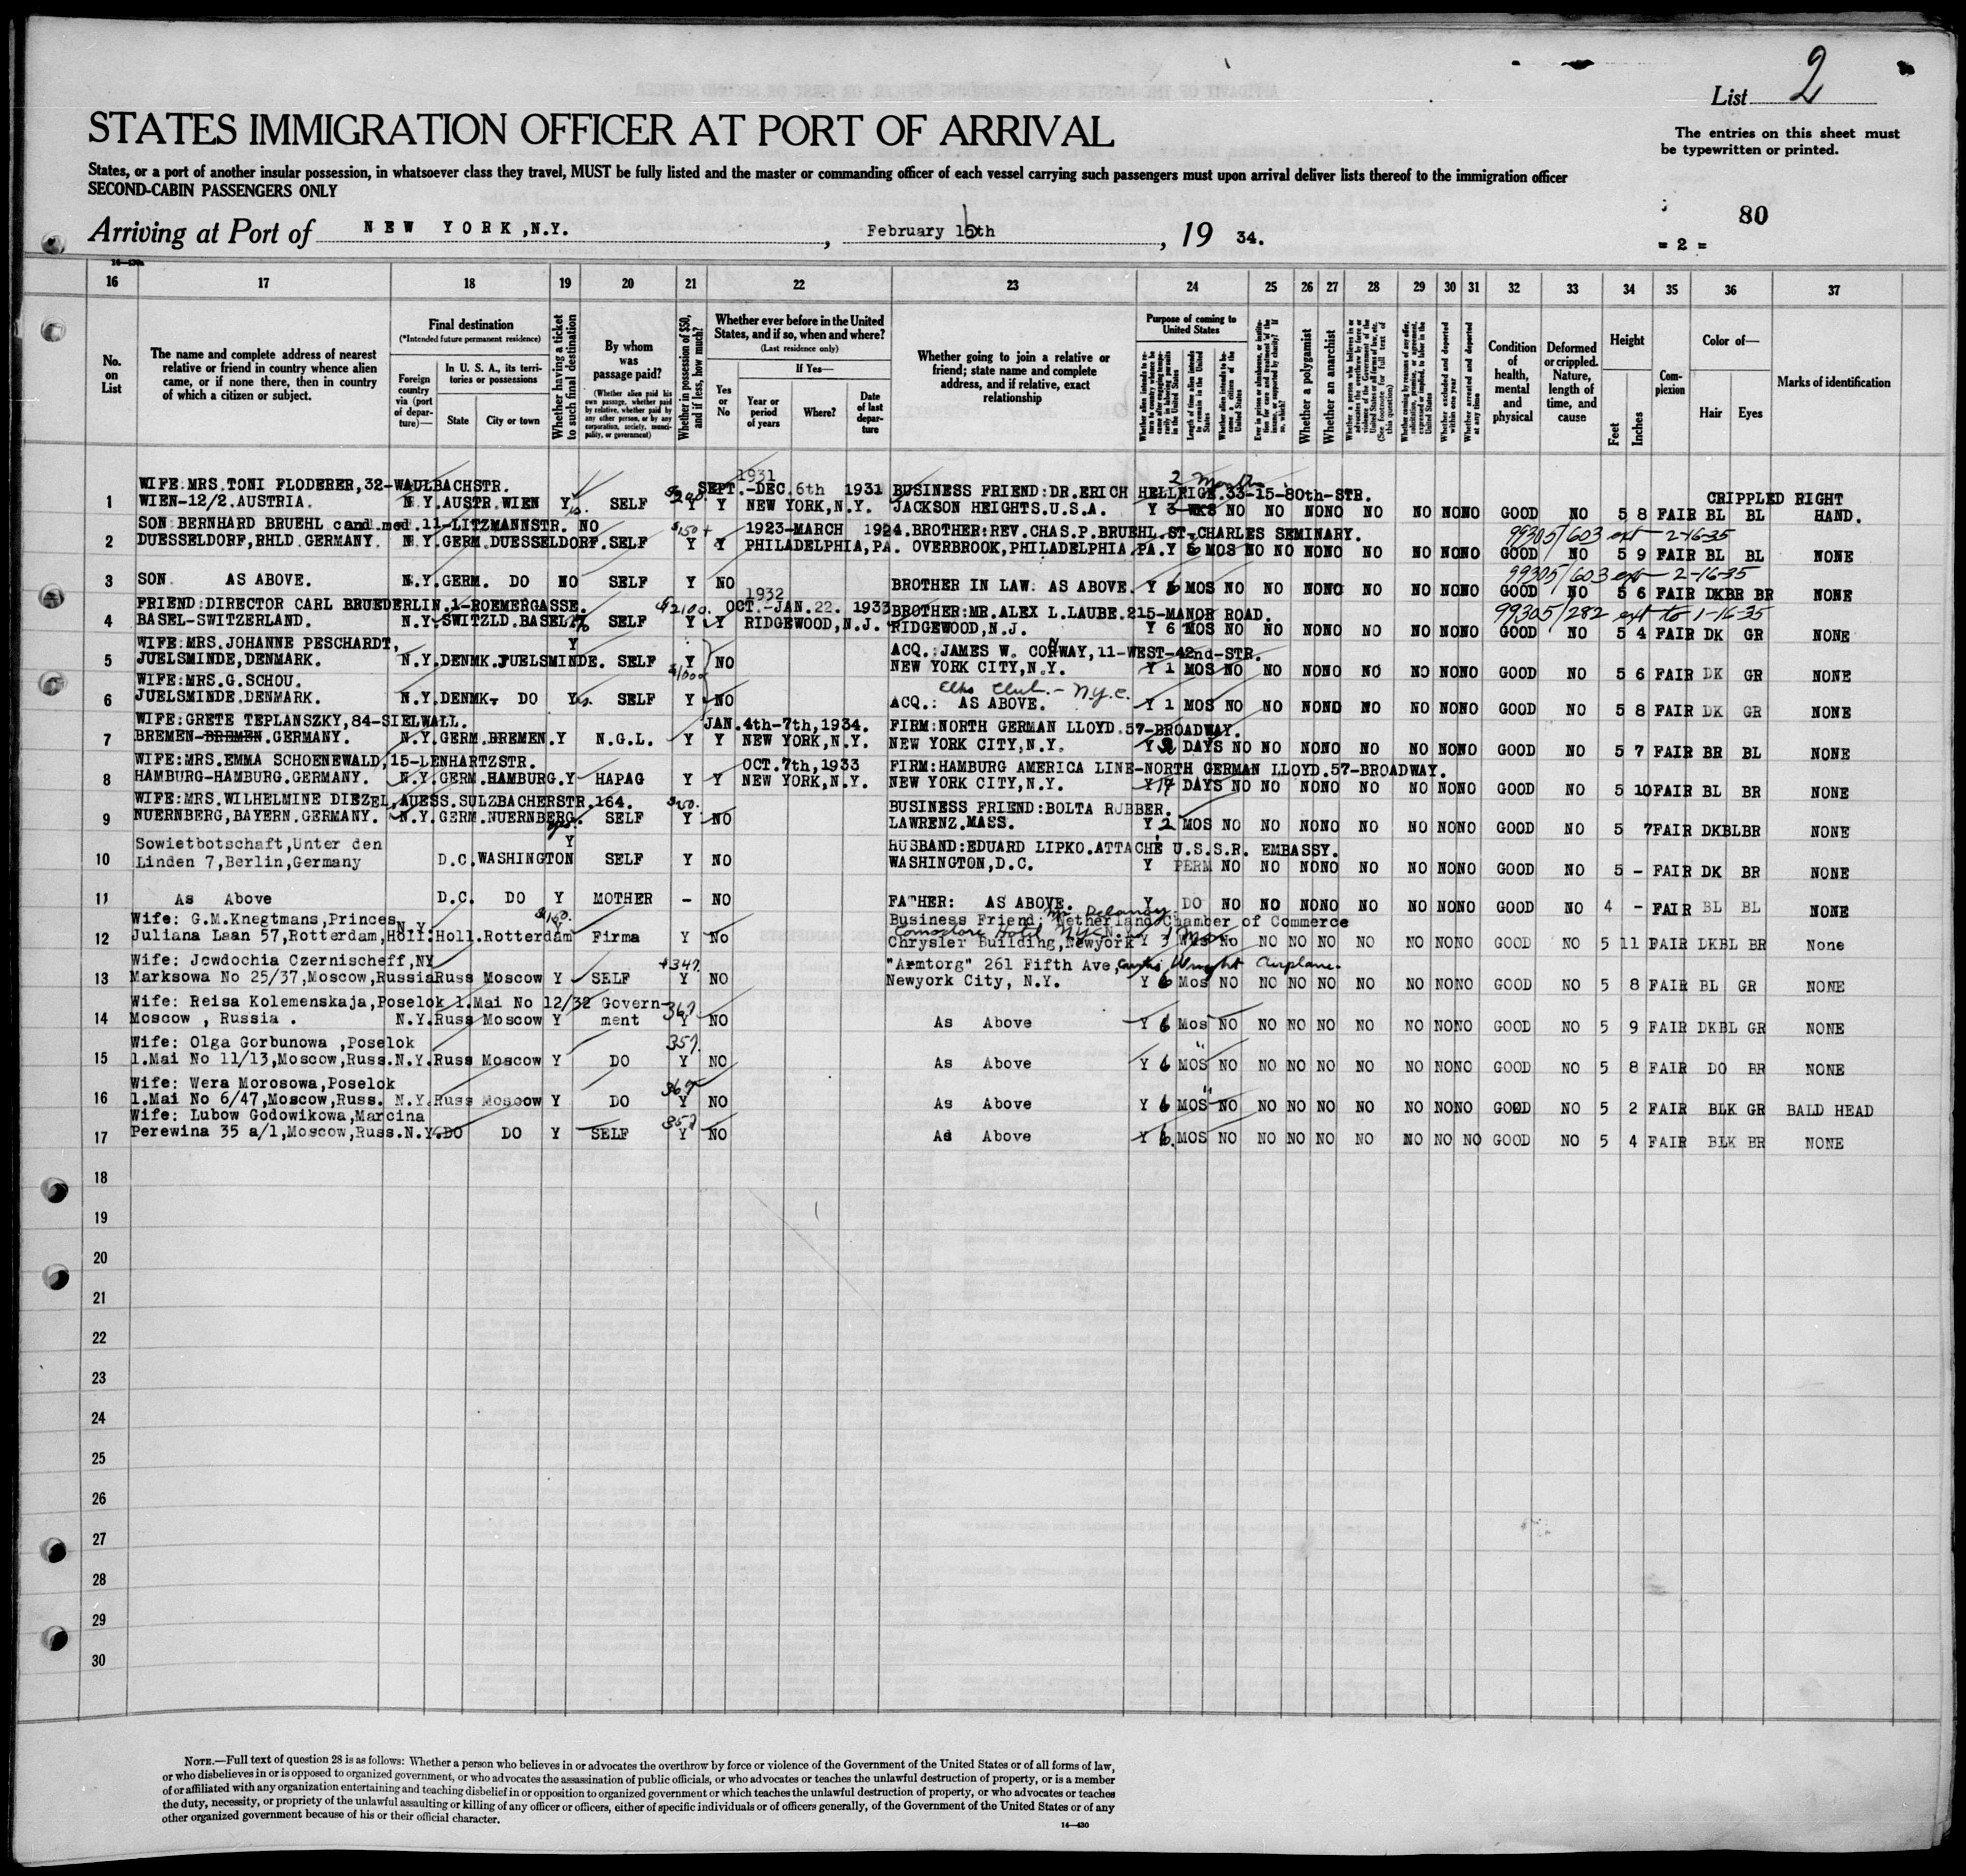 List 2
STATES IMMIGRATION OFFICER AT PORT OF ARRIVAL
The entries on this sheet must
be typewritten or printed.
States, or a port of another insular possession, in whatsoever class they travel, MUST be fully listed and the master or commanding officer of each vessel carrying such passengers must upon arrival deliver lists thereof to the immigration officer
SECOND-CABIN PASSENGERS ONLY
80
Arriving at Port of NEW YORK, N.Y. , February 16th , 19 34.
= 2 =
16 17 18 19 20 21 22 23 24 25 26 27 28 29 30 31 32 33 34 35 36 37
No. on List
The name and complete address of nearest relative or friend in country whence alien came, or if none there, then in country of which a citizen or subject.
Final destination
(*Intended future permanent residence)
Foreign country via (port of departure)—
In U. S. A., its territories or possessions
State City or town
Whether having a ticket to such final destination
By whom was passage paid?
(Whether alien paid his own passage, whether paid by relative, whether paid by any other person, or by any corporation, society, municipality, or government)
Whether in possession of $50, and if less, how much?
Whether ever before in the United States, and if so, when and where?
(Last residence only)
Yes or No
If Yes—
Year or period of years Where? Date of last departure
Whether going to join a relative or friend; state name and complete address, and if relative, exact relationship
Purpose of coming to United States
Length of time alien intends to remain in the United States
Whether alien intends to become a citizen of the United States
Whether a polygamist
Whether an anarchist
Whether excluded and deported within one year
Whether arrested and deported at any time
Condition of health, mental and physical
Deformed or crippled. Nature, length of time, and cause
Height
Feet Inches
Complexion
Color of—
Hair Eyes
Marks of identification
1931 2 Months
WIFE:MRS.TONI FLODERER,32-WAULBACHSTR. SEPT.-DEC.6th 1931 BUSINESS FRIEND:DR.ERICH HELLRIGE.33-15-80th-STR. CRIPPLED RIGHT
1 WIEN-12/2.AUSTRIA. N.Y.AUSTR.WIEN Y SELF Y Y NEW YORK,N.Y. JACKSON HEIGHTS.U.S.A. Y 3 WKS NO NO NONO NO NO NONO GOOD NO 5 8 FAIR BL BL HAND.
SON:BERNHARD BRUEHL cand.med.11-LITZMANNSTR. NO $150+ 1923-MARCH 1924. BROTHER:REV.CHAS.P.BRUEHL.ST.CHARLES SEMINARY. 99305/603 ext 2-16-35
2 DUESSELDORF,RHLD.GERMANY. N.Y.GERM.DUESSELDORF.SELF Y Y PHILADELPHIA,PA. OVERBROOK,PHILADELPHIA.PA.Y 6 MOS NO NO NONO NO NO NONO GOOD NO 5 9 FAIR BL BL NONE
99305/603 ext 2-16-35
3 SON. AS ABOVE. N.Y.GERM. DO NO SELF Y NO BROTHER IN LAW: AS ABOVE. Y 6 MOS NO NO NONO NO NO NONO GOOD NO 5 6 FAIR DKBR BR NONE
1932
FRIEND:DIRECTOR CARL BRUEDERLIN.1-ROEMERGASSE. $2100. OCT.-JAN.22. 1933 BROTHER:MR.ALEX L.LAUBE.215-MANOR ROAD. 99305/282 ext to 1-16-35
4 BASEL-SWITZERLAND. N.Y.SWITZLD.BASEL SELF Y Y RIDGEWOOD,N.J. RIDGEWOOD,N.J. Y 6 MOS NO NO NONO NO NO NONO GOOD NO 5 4 FAIR DK GR NONE
WIFE:MRS.JOHANNE PESCHARDT, Y ACQ.:JAMES W. CONWAY,11-WEST-42nd-STR.
5 JUELSMINDE,DENMARK. N.Y.DENMK.JUELSMINDE. SELF Y NO NEW YORK CITY,N.Y. Y 1 MOS NO NO NONO NO NO NONO GOOD NO 5 6 FAIR DK GR NONE
WIFE:MRS.G.SCHOU. $1000 Elks Club. - N.Y.C.
6 JUELSMINDE.DENMARK. N.Y.DENMK. DO Yes. SELF Y NO ACQ.: AS ABOVE. Y 1 MOS NO NO NONO NO NO NONO GOOD NO 5 8 FAIR DK GR NONE
WIFE:GRETE TEPLANSZKY,84-SIELWALL. JAN.4th-7th,1934. FIRM:NORTH GERMAN LLOYD.57-BROADWAY.
7 BREMEN-BREMEN.GERMANY. N.Y.GERM.BREMEN.Y N.G.L. Y Y NEW YORK,N.Y. NEW YORK CITY,N.Y. Y DAYS NO NO NONO NO NO NONO GOOD NO 5 7 FAIR BR BL NONE
WIFE:MRS.EMMA SCHOENEWALD,15-LENHARTZSTR. OCT.7th,1933 FIRM:HAMBURG AMERICA LINE-NORTH GERMAN LLOYD.57-BROADWAY.
8 HAMBURG-HAMBURG.GERMANY. N.Y.GERM.HAMBURG.Y HAPAG Y Y NEW YORK,N.Y. NEW YORK CITY,N.Y. Y DAYS NO NO NONO NO NO NONO GOOD NO 5 10 FAIR BL BR NONE
WIFE:MRS.WILHELMINE DIEZEL,AUESS.SULZBACHERSTR.164. BUSINESS FRIEND:BOLTA RUBBER.
9 NUERNBERG,BAYERN.GERMANY. N.Y.GERM.NUERNBERG. yes. SELF Y NO LAWRENZ.MASS. Y 2 MOS NO NO NONO NO NO NONO GOOD NO 5 7 FAIR DKBL BR NONE
Sowietbotschaft,Unter den Y HUSBAND:EDUARD LIPKO.ATTACHE U.S.S.R. EMBASSY.
10 Linden 7,Berlin,Germany D.C.WASHINGTON SELF Y NO WASHINGTON,D.C. Y PERM NO NO NONO NO NO NONO GOOD NO 5 - FAIR DK BR NONE
11 As Above D.C. DO Y MOTHER - NO FATHER: AS ABOVE. Y DO NO NO NONO NO NO NONO GOOD NO 4 - FAIR BL BL NONE
Wife: G.M.Knegtmans,Princes N.Y. $150. Mr Delaney
Business Friend: Netherland Chamber of Commerce
Comodore Hotel NYC
12 Juliana Laan 57,Rotterdam,Holl.Holl.Rotterdam Y Firma Y No Chrysler Building,Newyork Y 3 No NO NO NO NO NO NONO GOOD NO 5 11 FAIR DKBL BR None
Wife: Jewdochia Czernischeff,NY +347. "Armtorg" 261 Fifth Ave, Curtis Wright Airplane.
13 Marksowa No 25/37,Moscow,Russia Russ Moscow Y SELF Y NO Newyork City, N.Y. Y 6 Mos NO NO NO NO NO NO NONO GOOD NO 5 8 FAIR BL GR NONE
Wife: Reisa Kolemenskaja,Poselok 1.Mai No 12/32 Govern- 367
14 Moscow , Russia . N.Y.Russ Moscow Y ment Y NO As Above Y 6 Mos NO NO NO NO NO NO NONO GOOD NO 5 9 FAIR DKBL GR NONE
Wife: Olga Gorbunowa ,Poselok 357.
15 1.Mai No 11/13,Moscow,Russ.N.Y.Russ Moscow Y DO Y NO As Above Y 6 MOS NO NO NO NO NO NO NONO GOOD NO 5 8 FAIR DO BR NONE
Wife: Wera Morosowa,Poselok 367
16 1.Mai No 6/47,Moscow,Russ. N.Y.Russ Moscow Y DO Y NO As Above Y 6 MOS NO NO NO NO NO NO NONO GOOD NO 5 2 FAIR BLK GR BALD HEAD
Wife: Lubow Godowikowa,Marcina 357
17 Perewina 35 a/1,Moscow,Russ.N.Y.DO DO Y SELF Y NO As Above Y 6 MOS NO NO NO NO NO NO NO NO GOOD NO 5 4 FAIR BLK BR NONE
18
19
20
21
22
23
24
25
26
27
28
29
30
NOTE.—Full text of question 28 is as follows: Whether a person who believes in or advocates the overthrow by force or violence of the Government of the United States or of all forms of law,
or who disbelieves in or is opposed to organized government, or who advocates the assassination of public officials, or who advocates or teaches the unlawful destruction of property, or is a member
of or affiliated with any organization entertaining and teaching disbelief in or opposition to organized government or which teaches the unlawful destruction of property, or who advocates or teaches
the duty, necessity, or propriety of the unlawful assaulting or killing of any officer or officers, either of specific individuals or of officers generally, of the Government of the United States or of any
other organized government because of his or their official character.
14—430